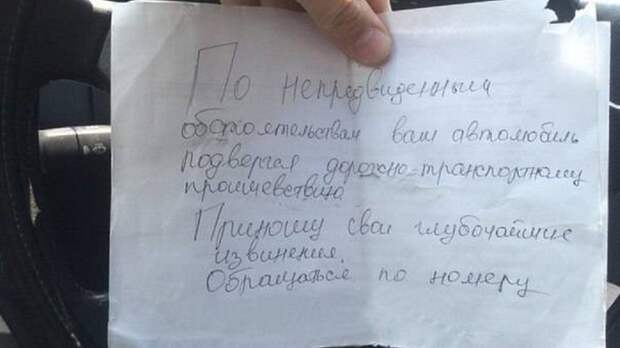 По непредвиденным
обстоятельствам ваш автомобиль
подвергся дорожно-транспортному
происшевствию
Приношу свои глубочайшие
извинения.
Обращаться по номеру